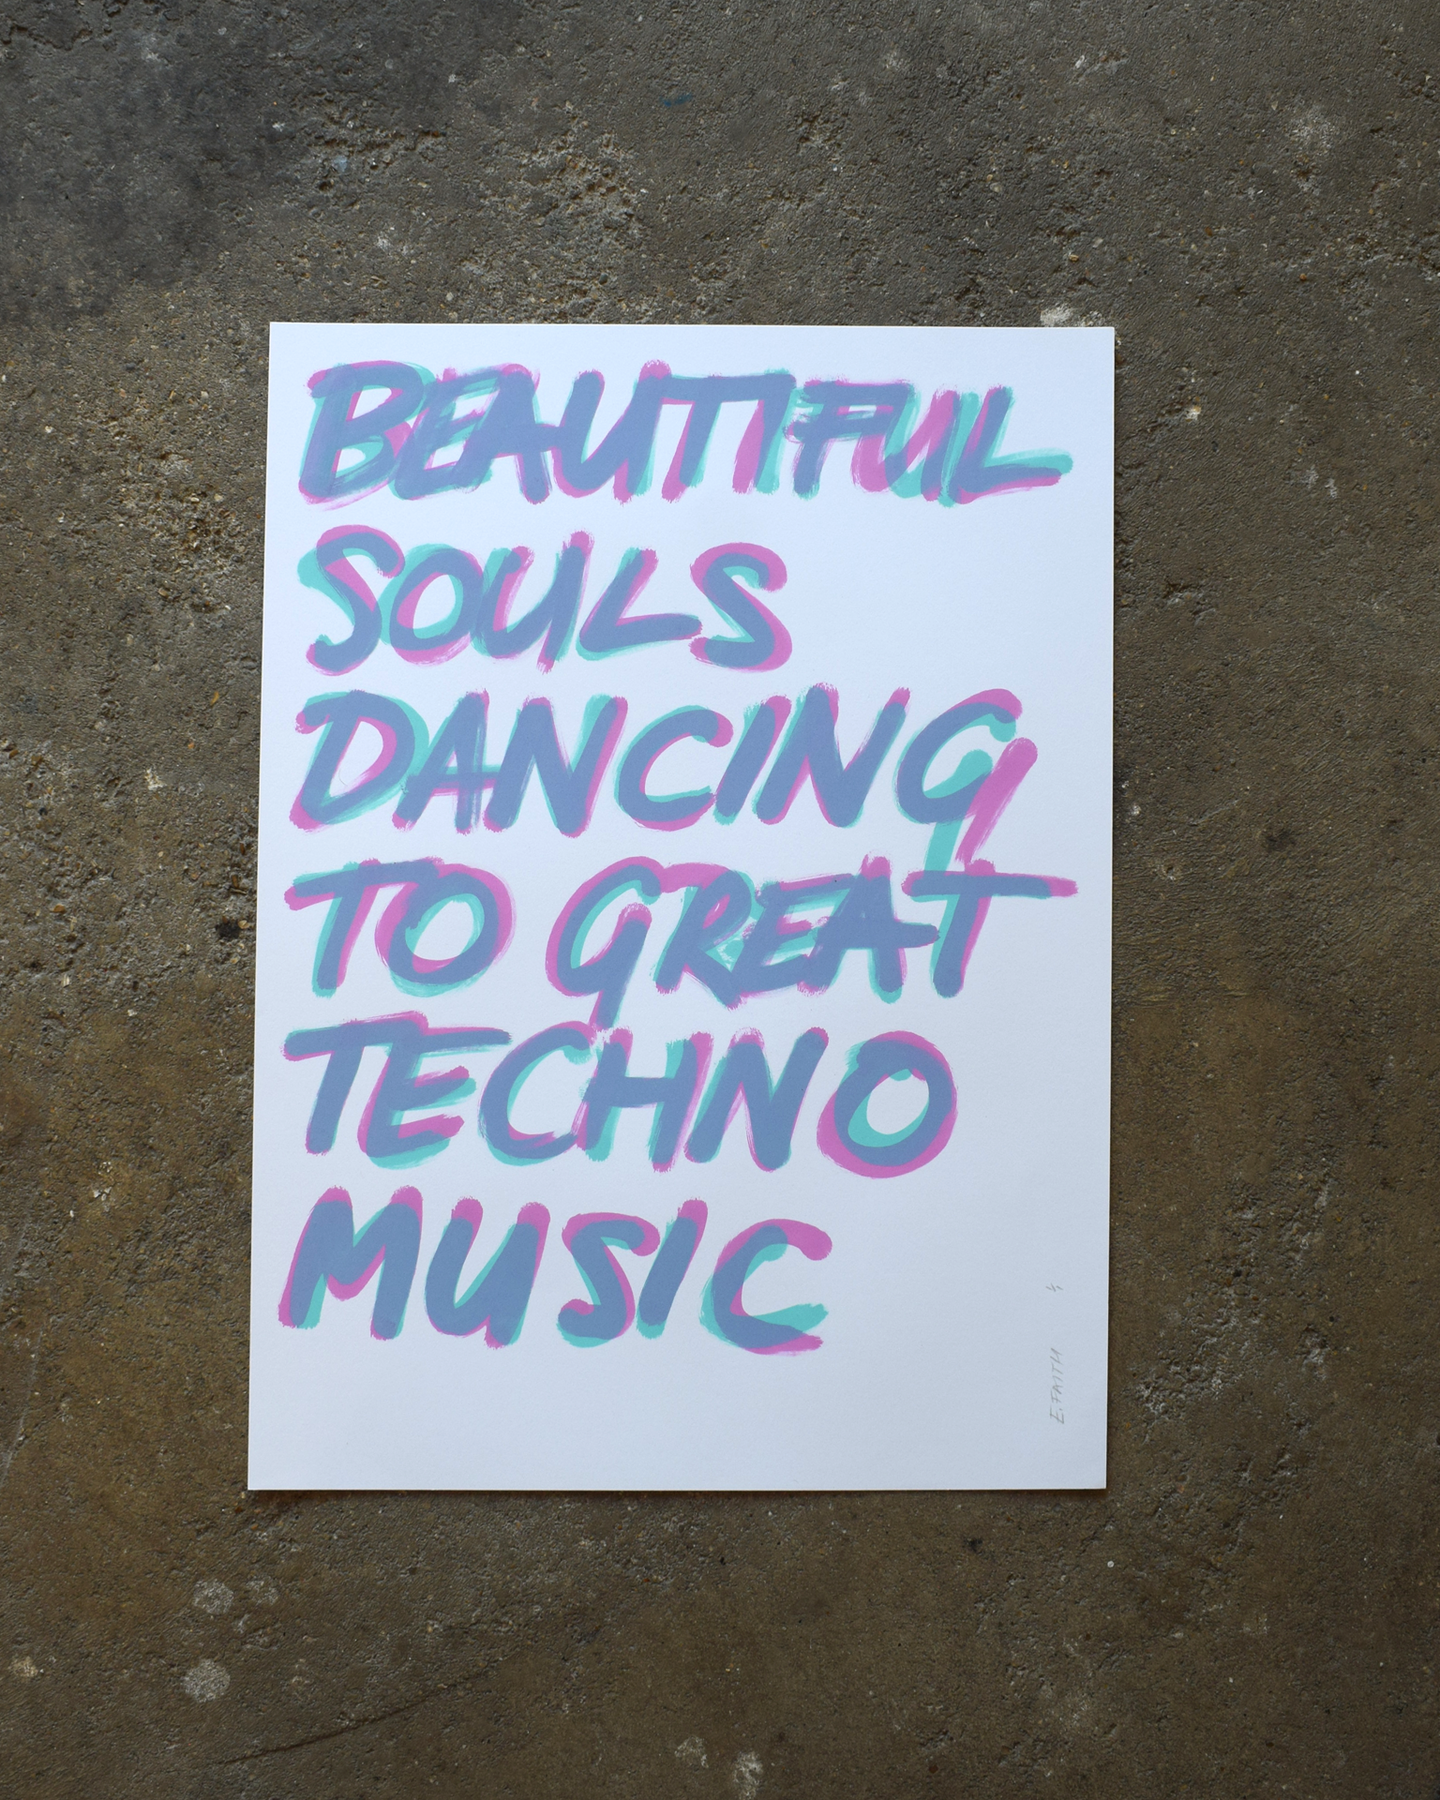 BEAUTIFUL
SOULS
DANCING
TO GREAT
TECHNO
MUSIC
E. FAITH